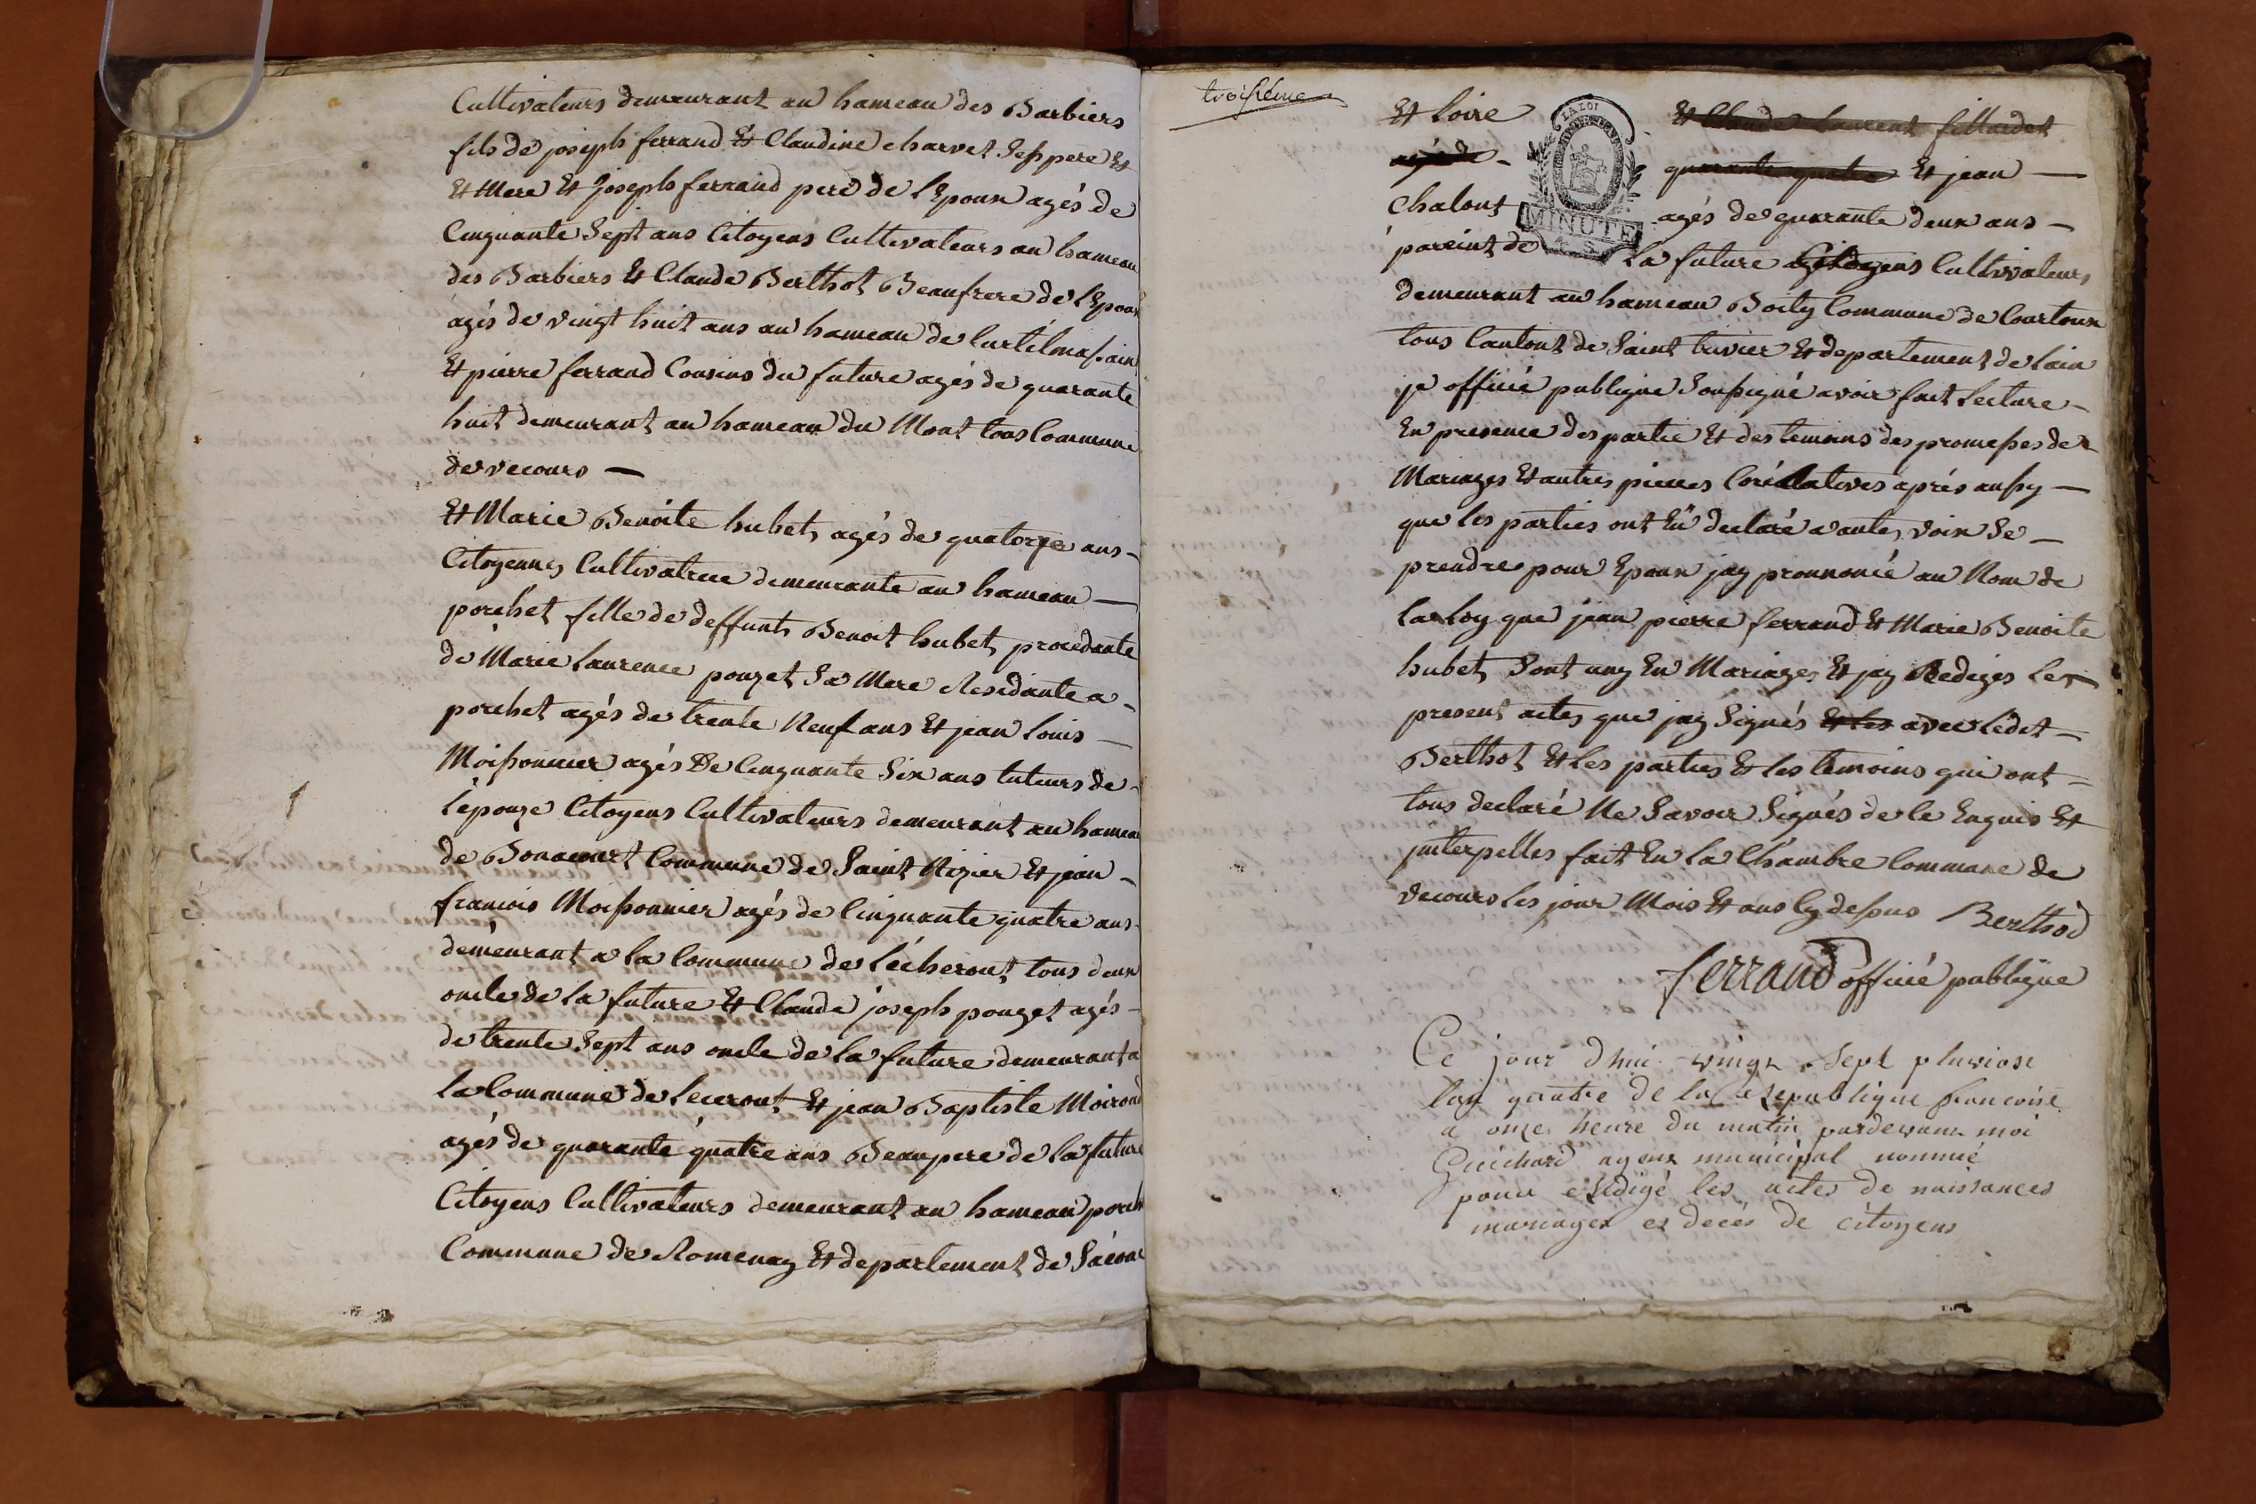 Cultivateurs demeurant au hameau des Barbiers
fils de joseph ferrand Et Claudine charvet Ses pere Et
Et Mere Et joseph ferrand pere de l'Epoux agés de
Cinquante Sept ans Citoyens Cultivateurs au hameau
des Barbiers Et Claude Berthot Beaufrere de l'Epoux
agés de vingt huit ans au hameau de
Et pierre ferrand Cousins du future agés de quarante
huit demeurant au hameau du Mont tous Commune
de vecours —
Et Marie Benoite hubet, agés de quatorze ans -
Citoyennes Cultivatrice demeurante au hameau —
porchet fille de deffunt, Benoit hubet, procedante
de Marie Laurence pouzet Sa Mere Residante a -
porchet agés de trente Neuf ans Et jean Louis —
Moissonnier agés De Cinquante Six ans tuteurs de -
l'épouze Citoyens Cultivateurs demeurant au hameau
de Bonacourt Commune de Saint Nizier Et jean -
francois Moissonnier agés de Cinquante quatre ans -
demeurant a la Commune de l'écheroux, tous deux
oncle de la future Et Claude joseph pouzet agés -
de trente Sept ans oncle de la future demeurant a
la Commune de Leceroux, Et jean Baptiste Moirond
agés de quarante quatre ans Beaupere de la future
Citoyens Cultivateurs demeurant au hameau porch
Commune de Romenay Et departement de Sáeone
troisieme
Et Loire Et Claude Laurent fillardet
agés de - quarante quatre Et jean —
Chalont agés de quarante deux ans —
pareint de La future Citoyens Cultivateurs
LA LOI
MINUTE
demeurant au hameau Boity Commune de Courtoux
tous Cantont de Saint trivier Et departement de lain
je officié publique Soussigné avoir fait Lecture -
En presence des partie Et des temoins des promesses de
Mariages Et autres pieces Corélatives aprés aussy —
que les parties ont Eü declaré a autes, voix Se —
prendre pour Epoux jay prononcié au Nom de
la Loy que jean pierre ferrand Et Marie Benoite
hubet, Sont uny En Mariages Et jay Rediges Les
present actes que jay Signés Et les avec ledet —
Berthot Et Les parties Et les temoins qui ont —
tous declaré Ne Savoir Signés de le Enquis Et
jnterpelles fait En La Chambre Commune de
vecours les jour Mois Et ans Cy dessus Berthod
ferrand officié publique
Ce jour dhui vingt Sept pluviose
lan quatre de la republique francoise
a onze heure du matin pardevant moi
Guichard agent municipal nommé
pour rédigé les actes de naissances
mariages et decés de citoyens